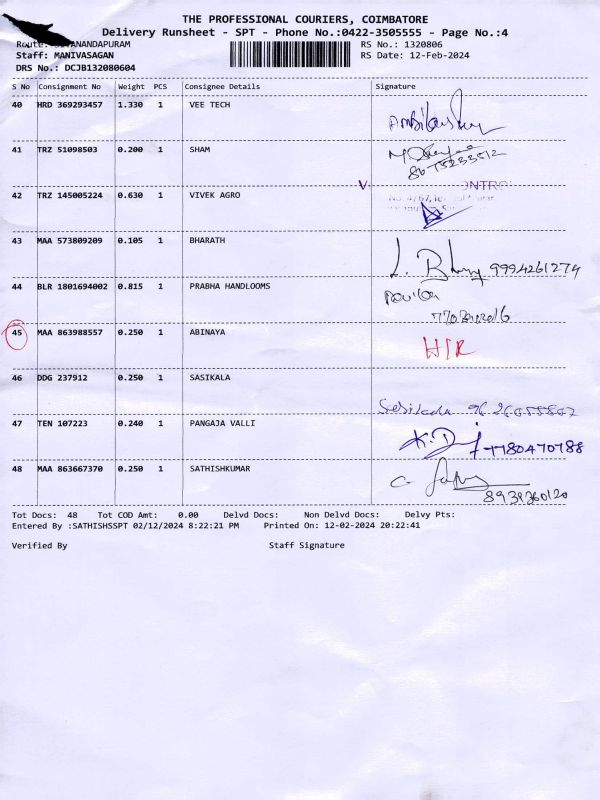 THE PROFESSIONAL COURIERS, COIMBATORE
Delivery Runsheet - SPT - Phone No.:0422-3505555 - Page No.:4
Route: RS No.: 1320806
Staff: MANIVASAGAN RS Date: 12-Feb-2024
DRS No.: DCJB132080604
S No Consignment No Weight PCS Consignee Details Signature
40 HRD 369293457 1.330 1 VEE TECH
41 TRZ 51098503 0.200 1 SHAM
42 TRZ 145005224 0.630 1 VIVEK AGRO
43 MAA 573809209 0.105 1 BHARATH
9994261274
44 BLR 1801694002 0.815 1 PRABHA HANDLOOMS
45 MAA 863988557 0.250 1 ABINAYA
46 DDG 237912 0.250 1 SASIKALA
47 TEN 107223 0.240 1 PANGAJA VALLI
7780470788
48 MAA 863667370 0.250 1 SATHISHKUMAR
Tot Docs: 48 Tot COD Amt: 0.00 Delvd Docs: Non Delvd Docs: Delvy Pts:
Entered By :SATHISHSSPT 02/12/2024 8:22:21 PM Printed On: 12-02-2024 20:22:41
Verified By Staff Signature